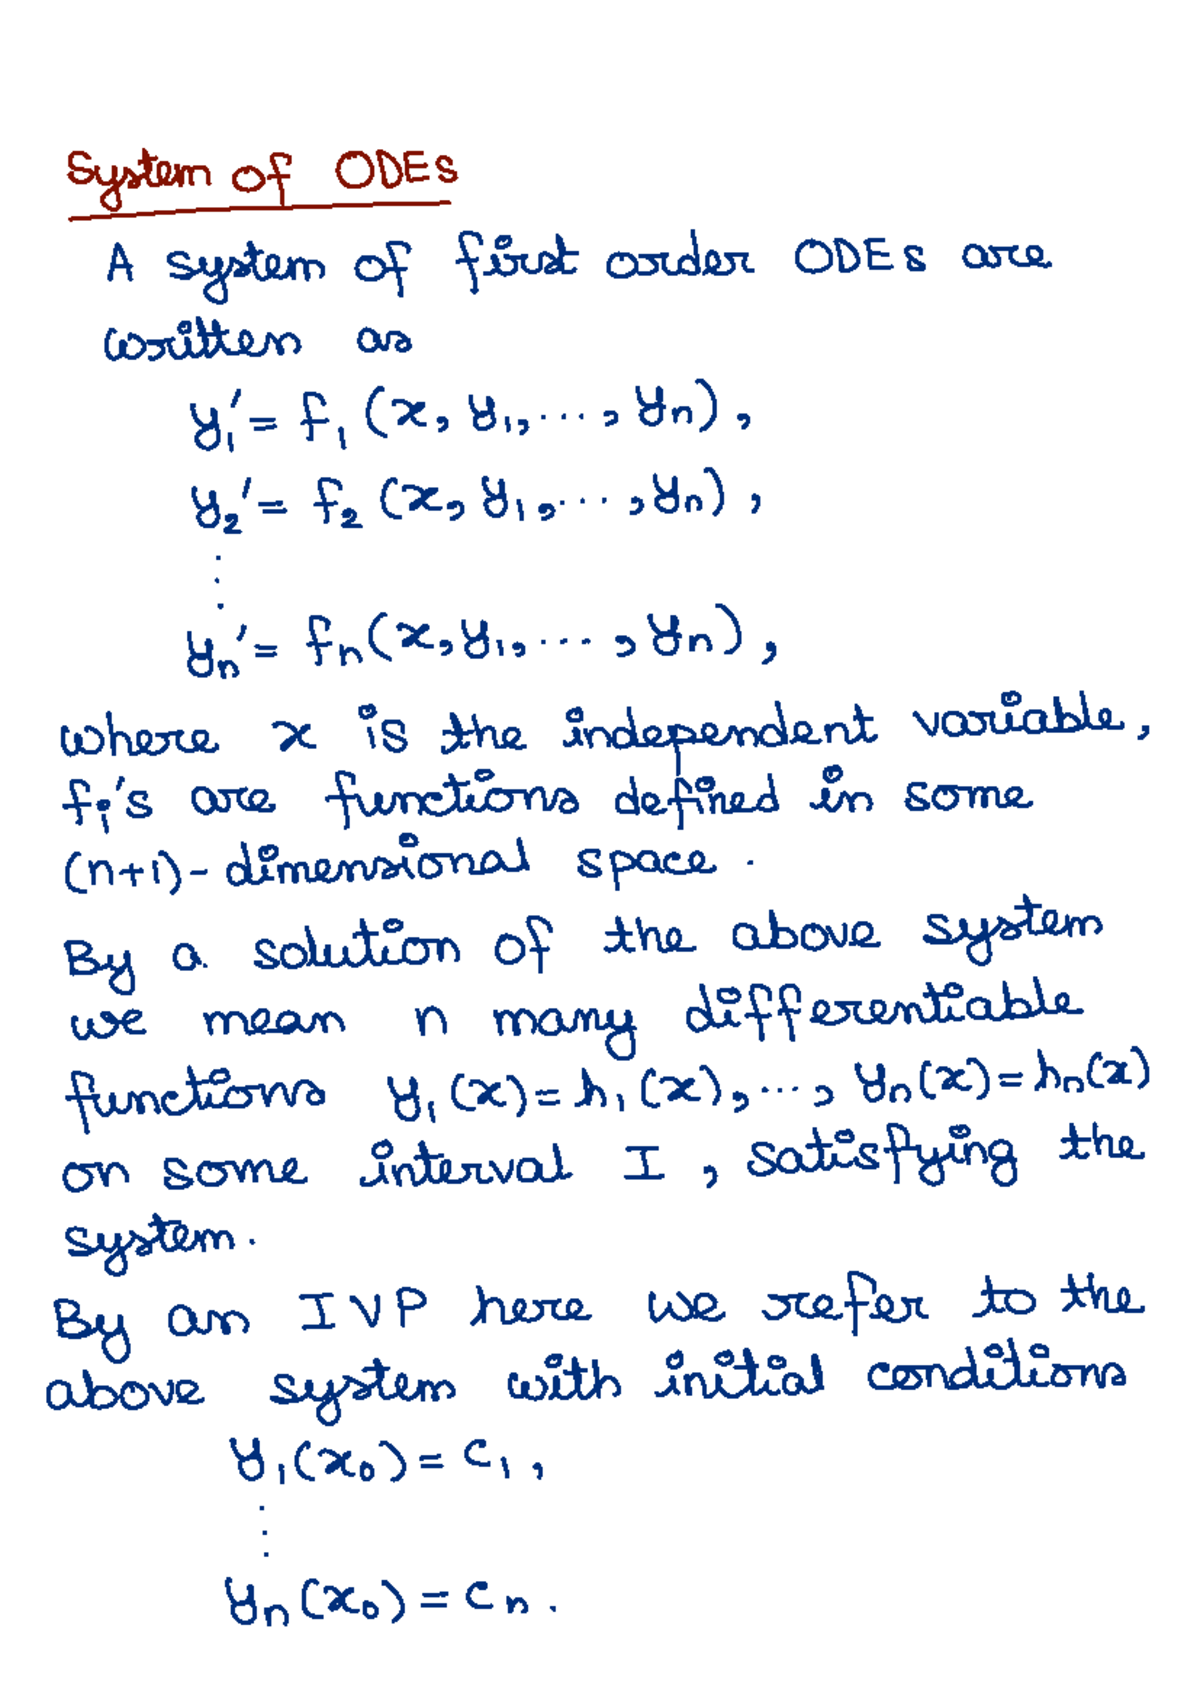 System of ODEs
A system of first order ODEs are
written as
y₁' = f₁ (x, y₁, ..., yₙ),
y₂' = f₂ (x, y₁, ..., yₙ),
⋮
yₙ' = fₙ(x, y₁, ..., yₙ),
where x is the independent variable,
fᵢ's are functions defined in some
(n+1)-dimensional space.
By a solution of the above system
we mean n many differentiable
functions y₁(x) = h₁(x), ..., yₙ(x) = hₙ(x)
on some interval I, satisfying the
system.
By an IVP here we refer to the
above system with initial conditions
y₁(x₀) = c₁,
⋮
yₙ(x₀) = cₙ.